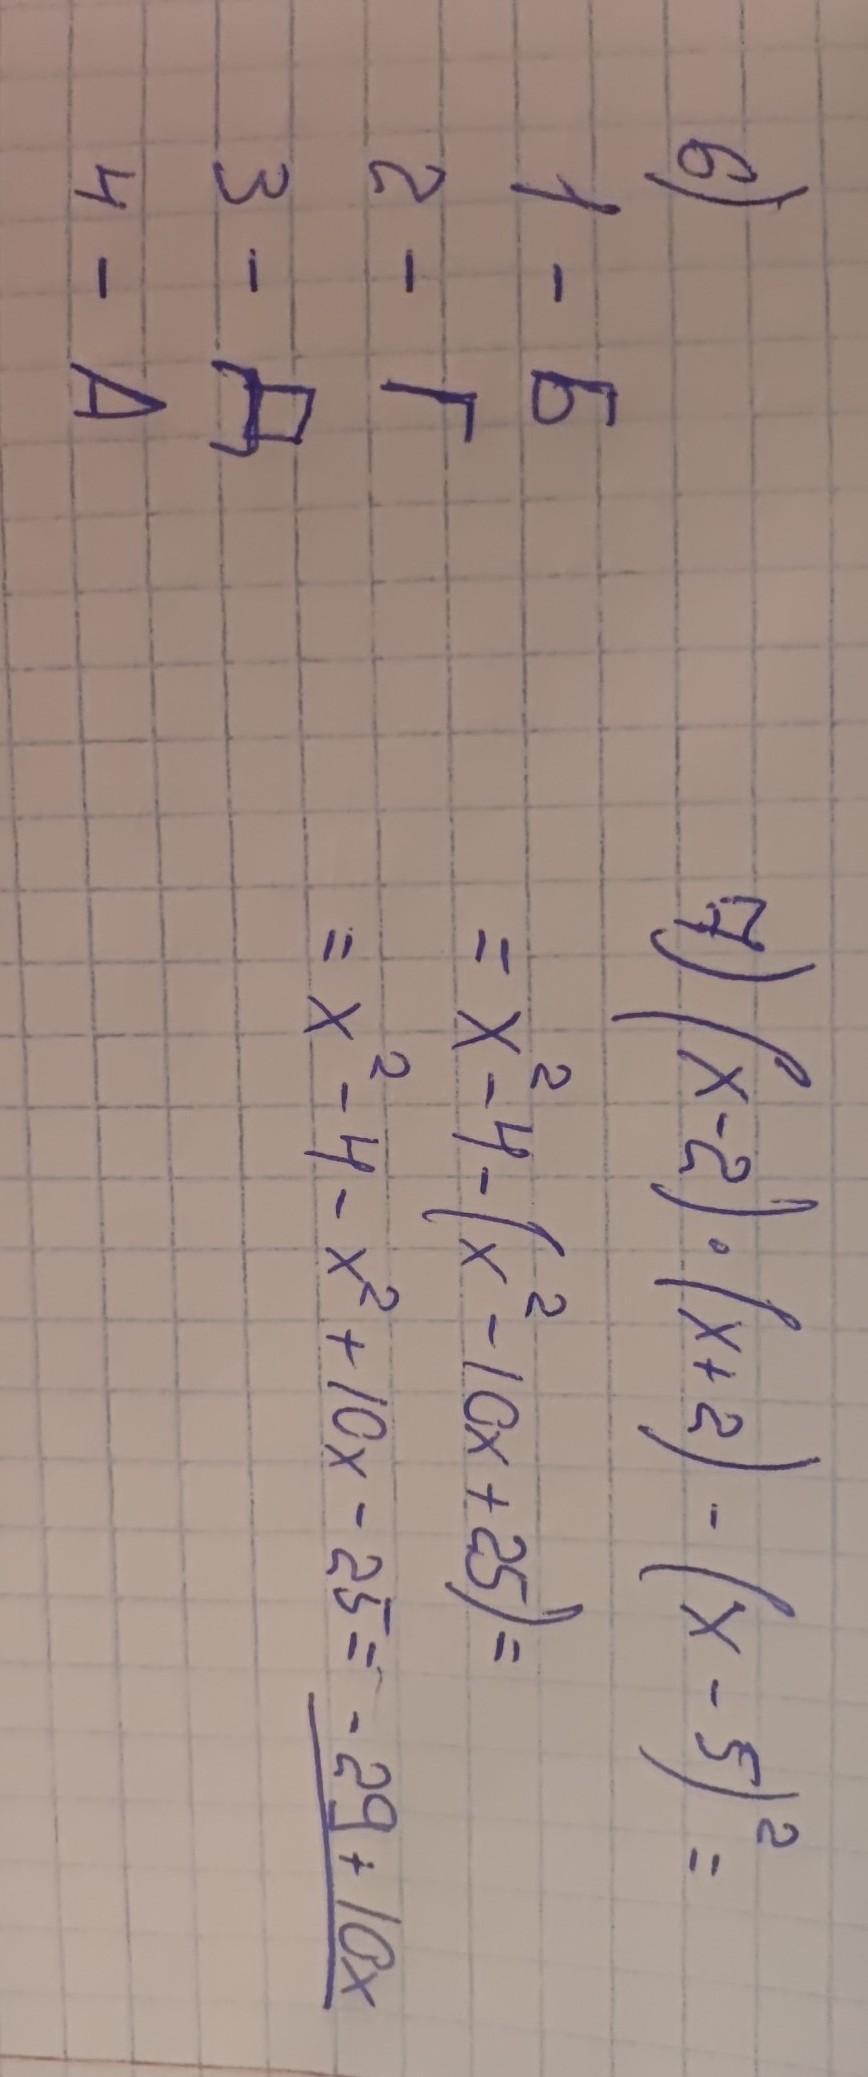 6)
1 - Б
2 - Г
3 - Д
4 - А
7) (x-2)·(x+2) - (x - 5)² =
= x² - 4 - (x² - 10x + 25) =
= x² - 4 - x² + 10x - 25 = - 29 + 10x